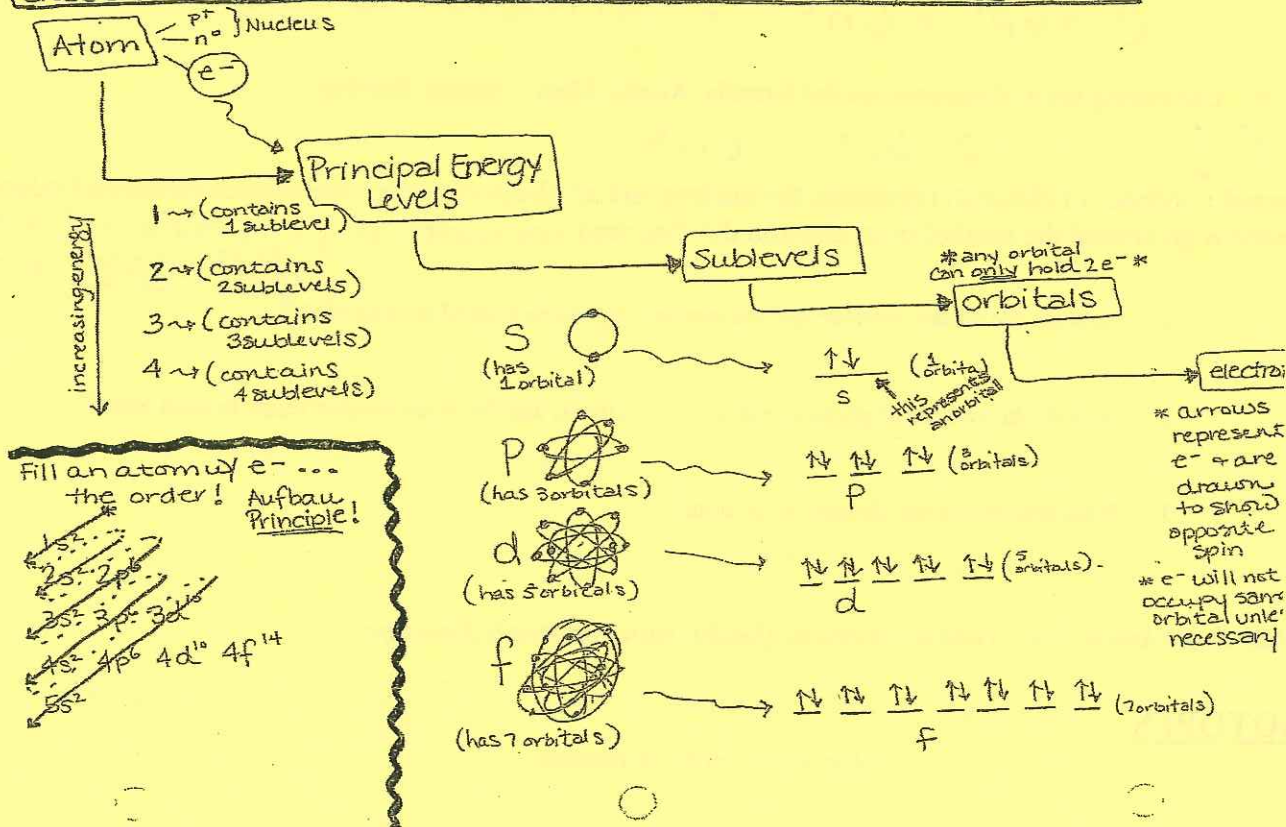 Atom
p+
n°
} Nucleus
e-
Principal Energy
Levels
increasing energy
1 ~→ (contains
1 sublevel)
2 ~→ (contains
2 sublevels)
3 ~→ (contains
3 sublevels)
4 ~→ (contains
4 sublevels)
Sublevels
* any orbital
can only hold 2e- *
orbitals
electro
S
(has
1 orbital)
↑↓
(1 orbital)
s
this
represents
an orbital
P
(has 3 orbitals)
↑↓ ↑↓ ↑↓ (3 orbitals)
p
d
(has 5 orbitals)
↑↓ ↑↓ ↑↓ ↑↓ ↑↓ (5 orbitals)
d
f
(has 7 orbitals)
↑↓ ↑↓ ↑↓ ↑↓ ↑↓ ↑↓ ↑↓ (7 orbitals)
f
* arrows
represent
e- + are
drawn
to show
opposite
spin
* e- will not
occupy sam
orbital unle
necessary
Fill an atom w/ e- ...
the order!
Aufbau
Principle!
1s²
2s² 2p⁶
3s² 3p⁶ 3d¹⁰
4s² 4p⁶ 4d¹⁰ 4f¹⁴
5s²